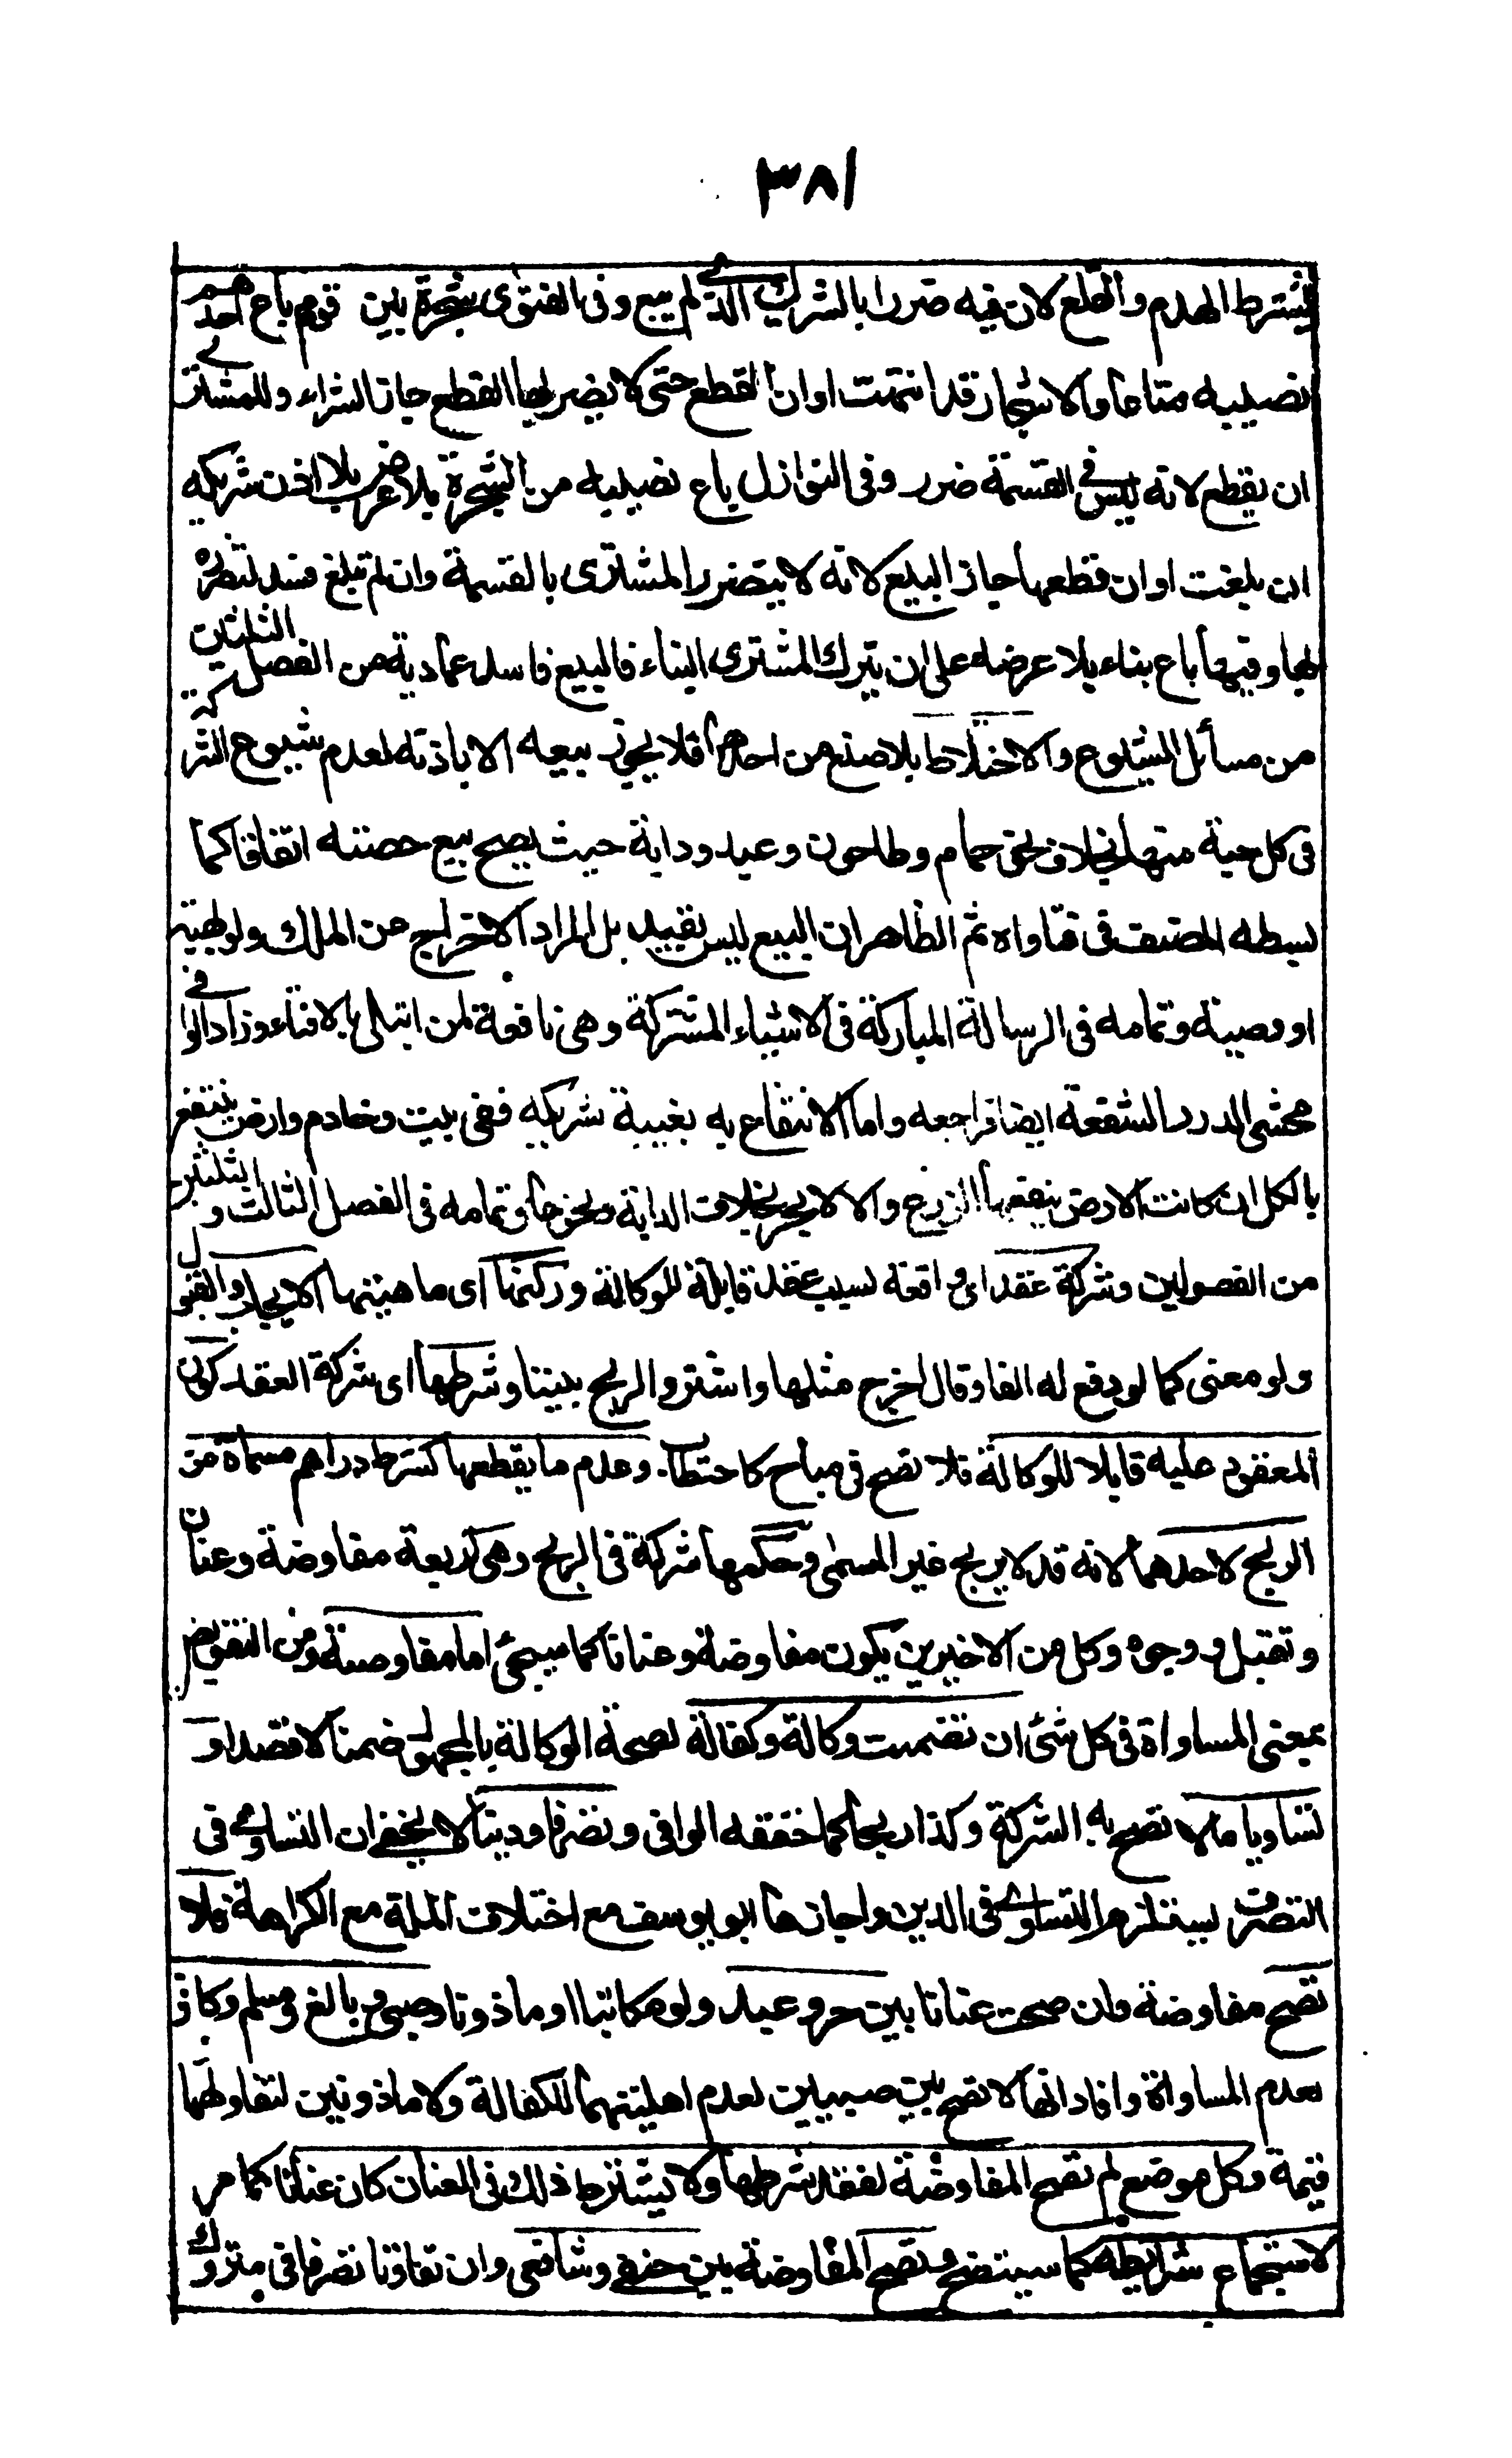 ٣٨١
يشترط الهدم والقلع لان فيه ضررا بالشريك الذى لم يبع وفى الفتوى شجرة بين قوم باع احدهم
نصيبه مشاعا والاشجار قد انتهت اوان القطع حتى لا يضرها القطع جاز الشراء وللمشترى
ان يقطع لانه ليس فى القسمة ضرر وفى النوازل باع نصيبه من الشجرة بلا ارض بلا اذن شريكه
ان بلغت اوان قطعها جاز البيع لانه لا يتضرر المشترى بالقسمة وان لم تبلغ فسد لتضرره
بها وفيها باع بناء بلا عرضه على ان يترك المشترى البناء فالبيع فاسد عمادية من الفصل الثلثين
من مسائل الشيوع والاختلاط بلا صنع من احدهما فلا يجوز بيعه الا باذنه لعدم شيوع الشركة
فى كل حبة منها بخلاف نحو حمام وطاحون وعبد ودابة حيث يصح بيع حصته اتفاقا كما
بسطه المصنف فى فتاواه ثم الظاهر ان البيع ليس بقيد بل المراد الاخراج عن الملك ولو بهبة
او وصية وتمامه فى الرسالة المباركة فى الاشياء المشتركة وهى نافعة لمن ابتلى بالافتاء وزاد الوانى
محشى الدرر الشفعة ايضا فراجعه واما الانتفاع به بغيبة شريكه ففى بيت وخادم وارض ينتفع
بالكل ان كانت الارض ينفعها الزرع والا لا بحر بخلاف الدابة ونحوها وتمامه فى الفصل الثالث والثلثين
من الفصولين وشركة عقد اى واقعة بسبب عقد قابلة للوكالة وركنها اى ماهيتها الايجاب والقبول
ولو معنى كما لو دفع له الفا وقال اخرج مثلها واشتر والربح بيننا وشرطها اى شركة العقد كون
المعقود عليه قابلا للوكالة فلا تصح فى مباح كاحتطاب وعدم ما يقطعها كشرط دراهم مسماة من
الربح لاحدهما لانه قد لا يربح غير المسمى وحكمها شركة فى الربح وهى اربعة مفاوضة وعنان
وتقبل ووجوه وكل من الاخيرين يكون مفاوضة وعنانا كما سيجئ اما مفاوضة من التفويض
بمعنى المساواة فى كل شئ ان تضمنت وكالة وكفالة لصحة الوكالة بالمجهول ضمنا لا قصدا و
تساويا مالا تصح به الشركة وكذا ربحا كما حققه الوانى وتصرفا ودينا لا يخفى ان التساوى فى
التصرف يستلزم التساوى فى الدين واجازها ابو يوسف مع اختلاف الملة مع الكراهة فلا
تصح مفاوضة وان صحت عنانا بين حر وعبد ولو مكاتبا او ماذونا وصبى وبالغ ومسلم وكافر
لعدم المساواة وافاد انها لا تصح بين صبيين لعدم اهليتهما للكفالة ولا ماذونين لتفاوتهما
قيمة وكل موضع لم تصح المفاوضة لفقد شرطها ولا يشترط ذلك فى العنان كان عنانا كما مر
لاستجماع شرايطه كما سيتضح وتصح المفاوضة بين حنفى وشافعى وان تفاوتا تصرفا فى متروك